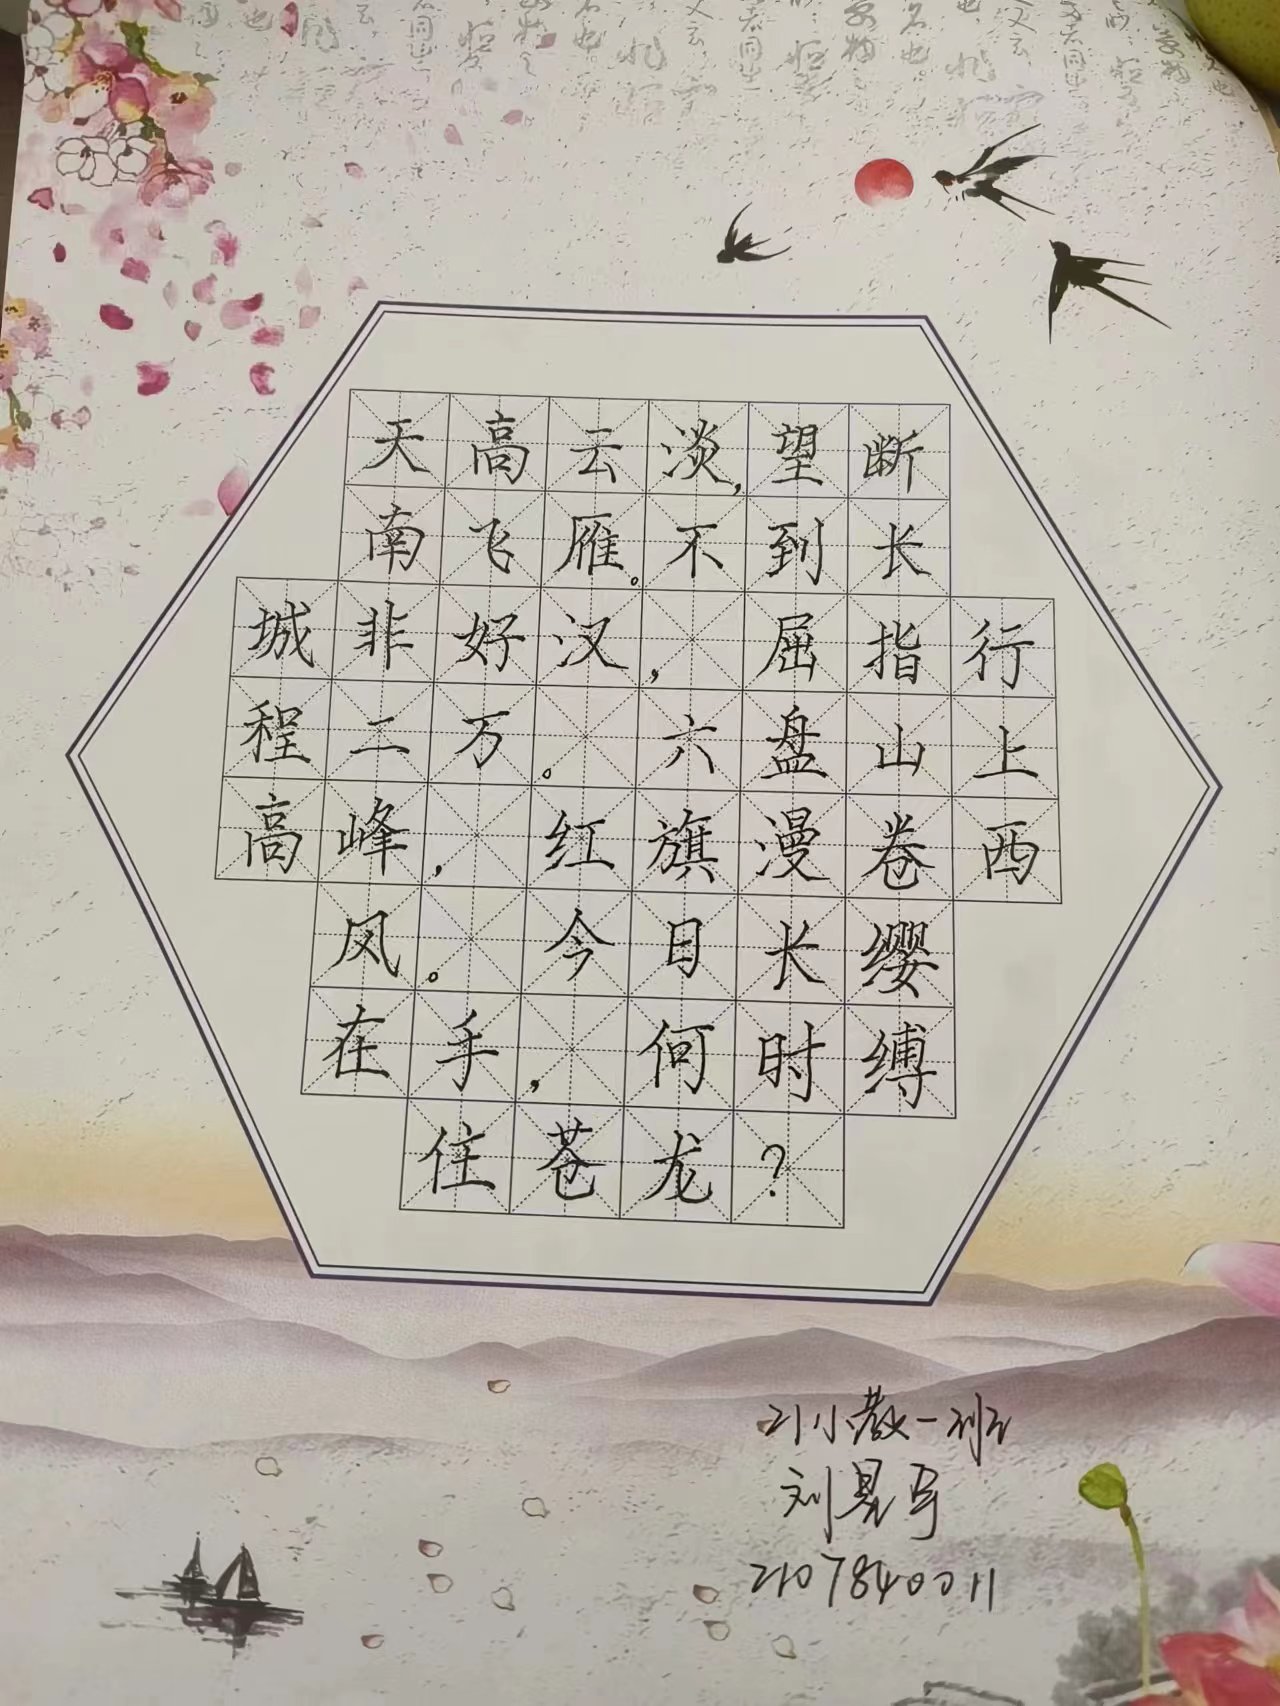 天高云淡,望断
南飞雁。不到长
城非好汉,屈指行
程二万。六盘山上
高峰,红旗漫卷西
风。今日长缨
在手,何时缚
住苍龙?
21小教一班
2107840011